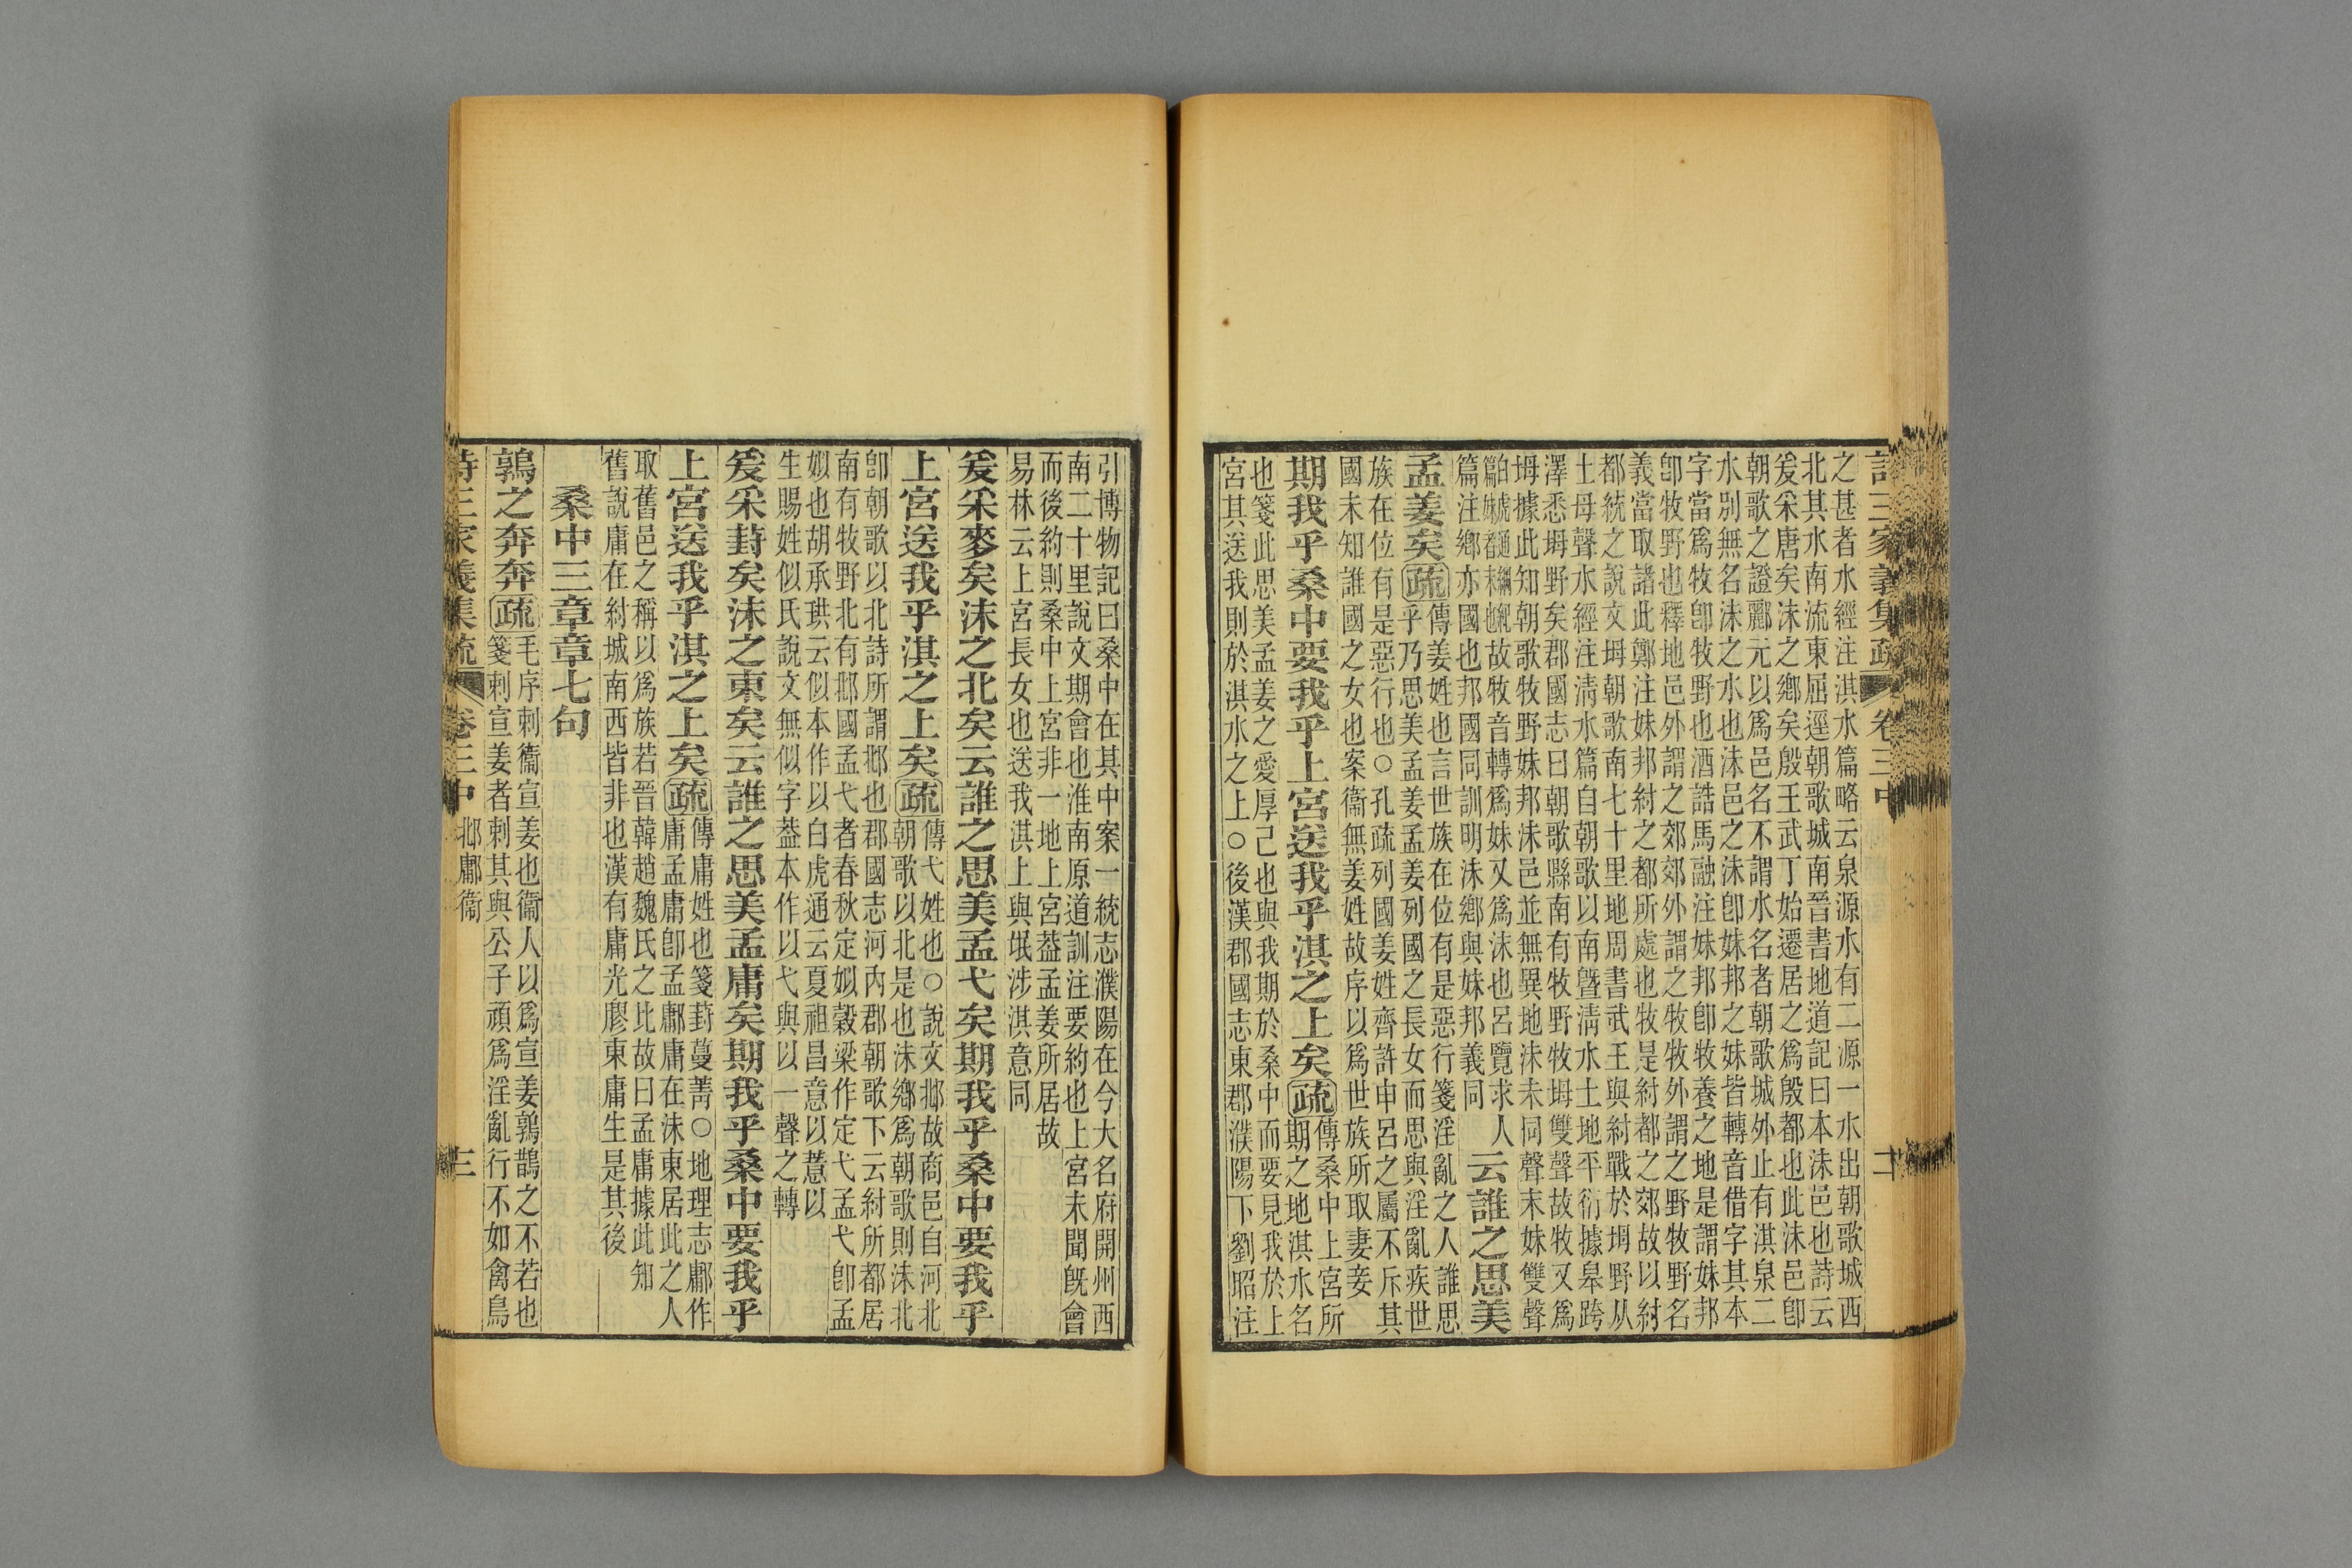 詩三家義集疏 卷三中 十二
之甚者水經注淇水篇略云泉源水有二源一水出朝歌城西
北其水南流東屈逕朝歌城南晉書地道記曰本沬邑也詩云
爰采唐矣沬之鄉矣殷王武丁始遷居之爲殷都也此沬邑卽
朝歌之證酈元以爲邑名不謂水名者朝歌城外止有淇泉二
水別無名沬之水也沬邑之沬卽妹邦之妹皆轉音借字其本
字當爲牧卽牧野也酒誥馬融注妹邦卽牧養之地是謂妹邦
卽牧野也釋地邑外謂之郊郊外謂之牧牧外謂之野牧野名
義當取諸此鄭注妹邦紂之都所處也牧是紂都之郊故以紂
都統之說文坶朝歌南七十里地周書武王與紂戰於坶野从
土母聲水經注淸水篇自朝歌以南曁淸水土地平衍據皋跨
澤悉坶野矣郡國志曰朝歌縣南有牧野牧坶雙聲故牧又爲
坶據此知朝歌牧野妹邦沬邑並無異地沬未同聲末妹雙聲
故牧音轉爲妹又爲沬也呂覽求人
篇注鄉亦國也邦國同訓明沬鄉與妹邦義同
云誰之思美
孟姜矣疏
傳姜姓也言世族在位有是惡行箋淫亂之人誰思
乎乃思美孟姜孟姜列國之長女而思與淫亂疾世
族在位有是惡行也○孔疏列國姜姓齊許申呂之屬不斥其
國未知誰國之女也案衞無姜姓故序以爲世族所取妻妾
期我乎桑中要我乎上宮送我乎淇之上矣疏
傳桑中上宮所
期之地淇水名
也箋此思美孟姜之愛厚己也與我期於桑中而要見我於上
宮其送我則於淇水之上○後漢郡國志東郡濮陽下劉昭注
引博物記曰桑中在其中案一統志濮陽在今大名府開州西
南二十里說文期會也淮南原道訓注要約也上宮未聞旣會
而後約則桑中上宮非一地上宮葢孟姜所居故
易林云上宮長女也送我淇上與氓涉淇意同
爰采麥矣沬之北矣云誰之思美孟弋矣期我乎桑中要我乎
上宮送我乎淇之上矣疏
傳弋姓也○說文邶故商邑自河北
朝歌以北是也沬鄉爲朝歌則沬北
卽朝歌以北詩所謂邶也郡國志河內郡朝歌下云紂所都居
南有牧野北有邶國孟弋者春秋定姒穀梁作定弋孟弋卽孟
姒也胡承珙云似本作以白虎通云夏祖昌意以薏以
生賜姓姒氏說文無似字葢本作以弋與以一聲之轉
爰采葑矣沬之東矣云誰之思美孟庸矣期我乎桑中要我乎
上宮送我乎淇之上矣疏
傳庸姓也箋葑蔓菁○地理志鄘作
庸孟庸卽孟鄘庸在沬東居此之人
取舊邑之稱以爲族若晉韓趙魏氏之比故曰孟庸據此知
舊說庸在紂城南西皆非也漢有庸光膠東庸生是其後
桑中三章章七句
鶉之奔奔疏
毛序刺衞宣姜也衞人以爲宣姜鶉鵲之不若也
箋刺宣姜者刺其與公子頑爲淫亂行不如禽鳥
詩三家義集疏 卷三中 邶鄘衞 十三